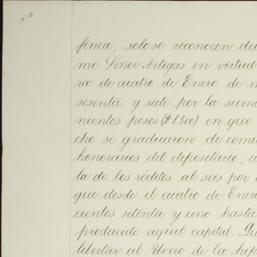 finca, solo se reconocen de
mo Señor Artigas en virtud
ra de cuatro de Enero de m
sesenta y siete por la sum
nientos pesos ($1500) en que
cho se graduaron de comi
honorarios del depositario, a
la de los réditos al seis por
que desde el cuatro de Enero
cientos setenta y uno hasta
producido aquel capital.
libertar al
de la hip